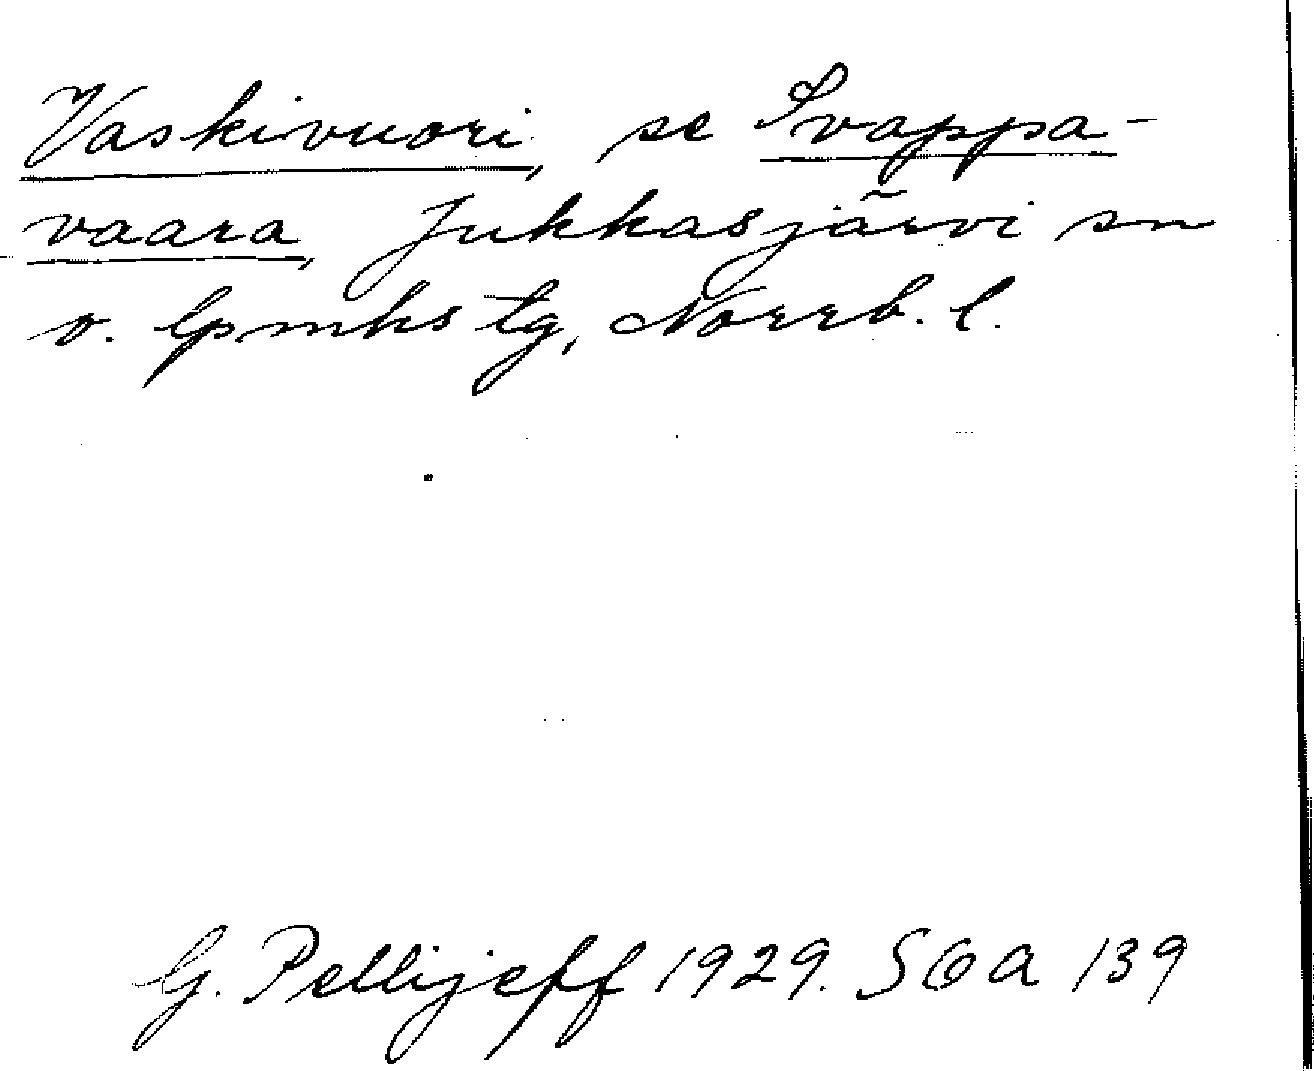 Vaskivuori, se Svappa-
vaara, Jukkasjärvi sn
o. lpmks tg, Norrb. l.
G. Pellijeff 1929. SOA 139